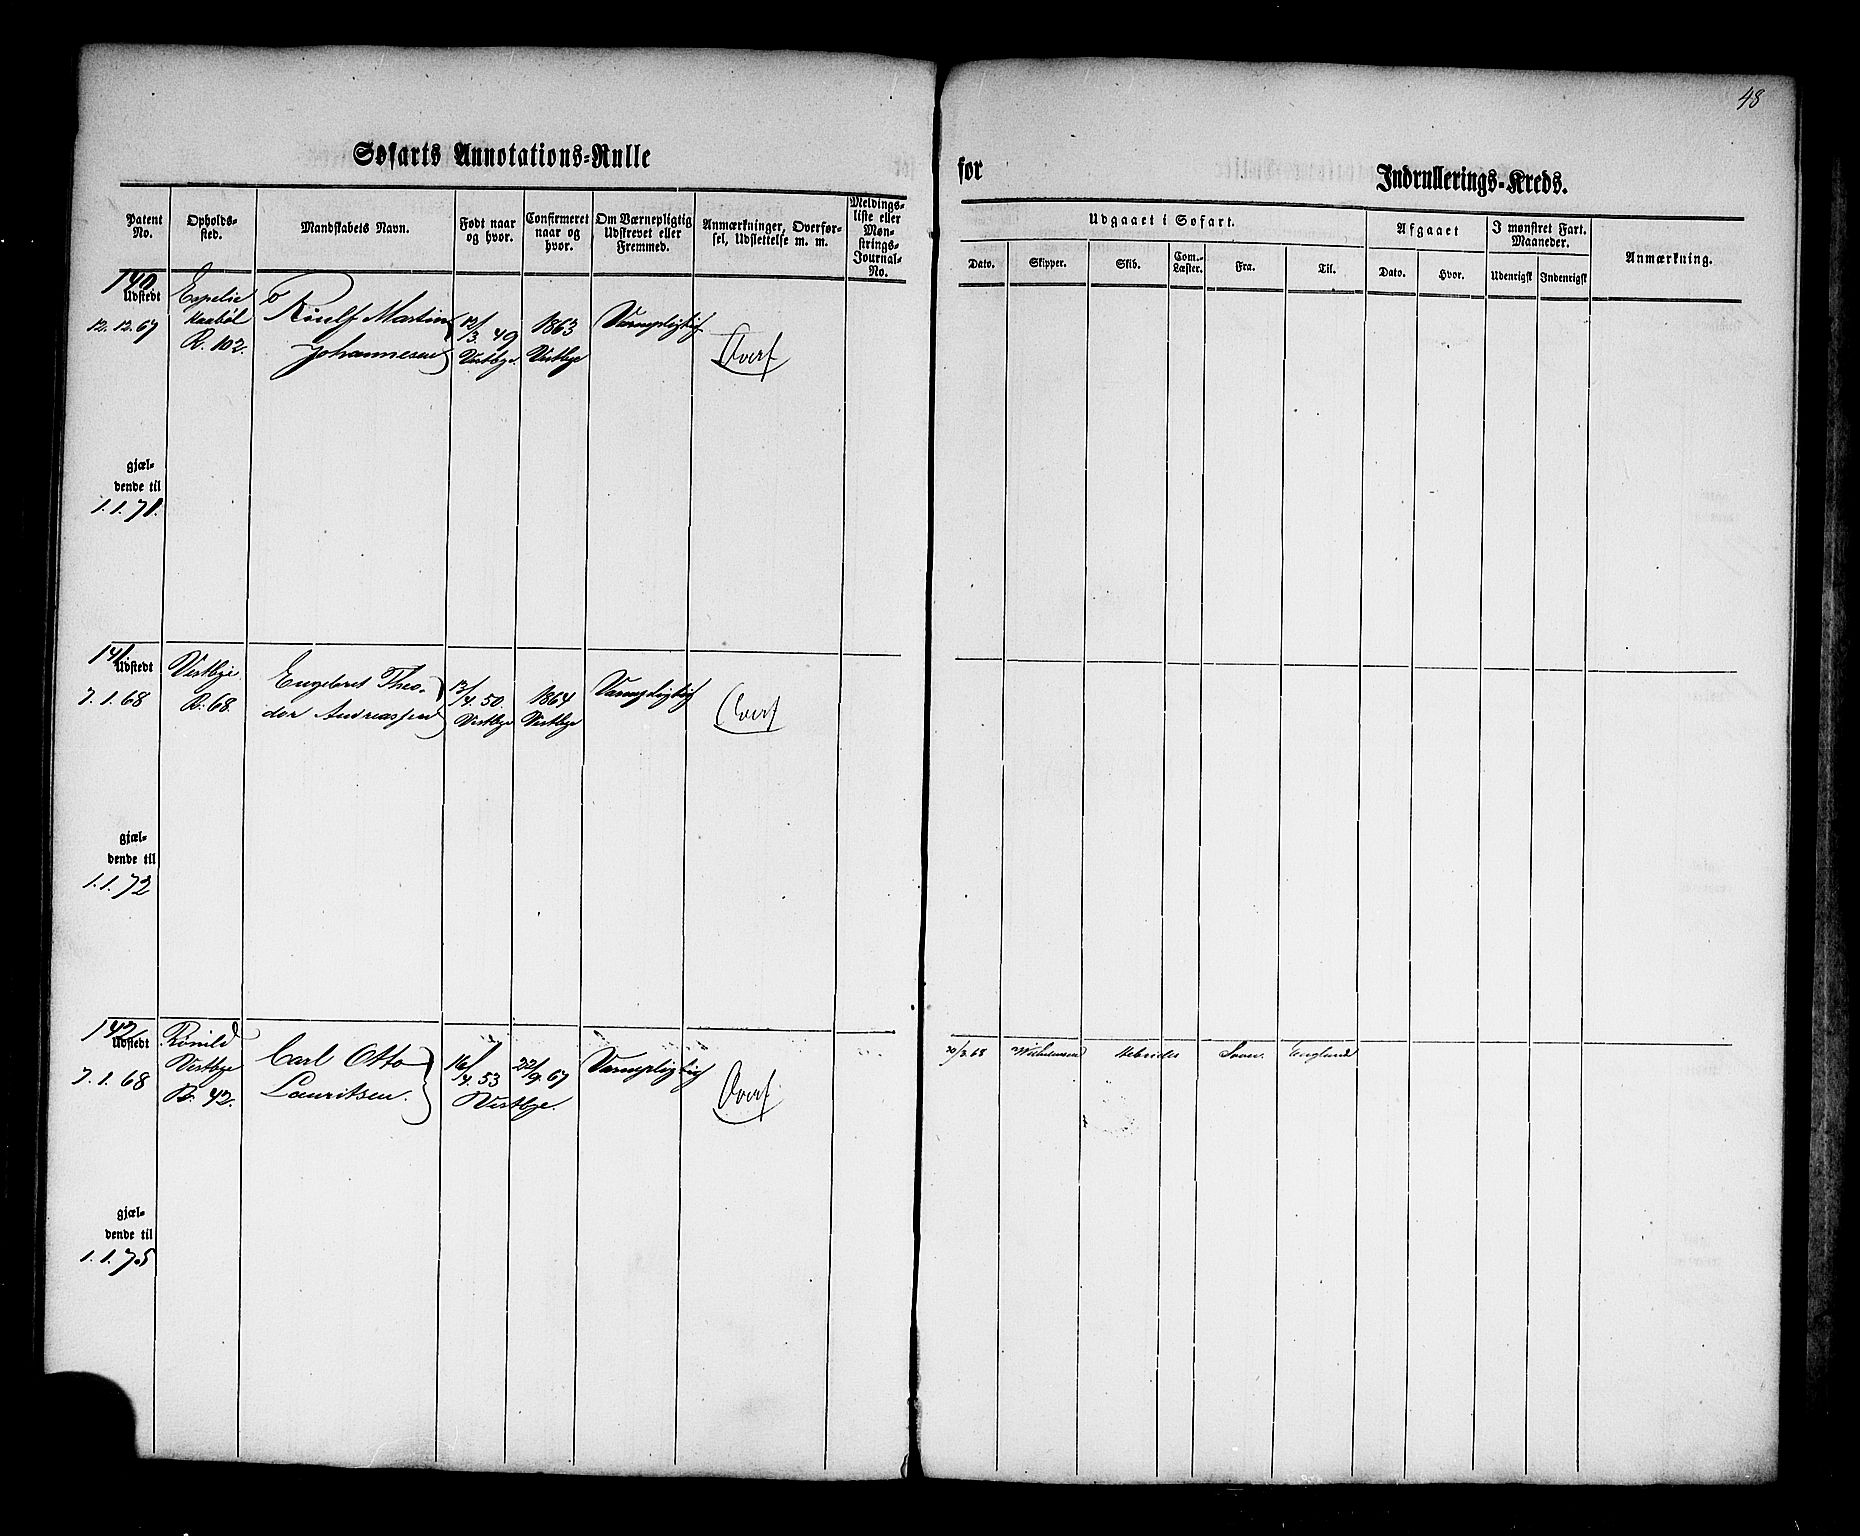 48
Søfarts Annotations-Rulle
for
Indrullerings-Kreds.
Patent No.
Opholds-sted.
Mandskabets Navn.
Født naar og hvor.
Confirmeret naar og hvor.
Om Værnepligtig Udskrevet eller Fremmed.
Anmærkninger, Overførsel, Udslettelse m. m.
Meldings-liste eller Mønstrings-Journal-No.
Udgaaet i Søfart.
Dato.
Skipper.
Skib.
Com.-Læster.
Fra.
Til.
Afgaaet
Dato.
Hvor.
I mønstret Fart. Maaneder.
Udenrigst
Indenrigst
Anmærkning.
140
Udstedt
12.12.67
Espelie
Kaabøl
R. 102.
Martin
Johannesen
12/3 49
Vestbye.
1863
Vestbye
Værnepligtig
Overf
gjæl-
dende til
1.1.71.
141
Udstedt
7.1.68
Vestbye
R. 68.
Engebret Theo-
dor Andreassen
13/4. 50.
Vestbye
1864
Vestbye
Værnepligtig
Overf
gjæl-
dende til
1.1.72
142
Udstedt
7.1.68
Rønild
Vestbye
R. 42.
Carl Otto
Lauritsen.
16/4. 53
22/9. 67
Vestbye.
Værnepligtig
Overf
/3.68
Wilhelmsen
Hebrides
Soon.
England
gjæl-
dende til
1.1.75